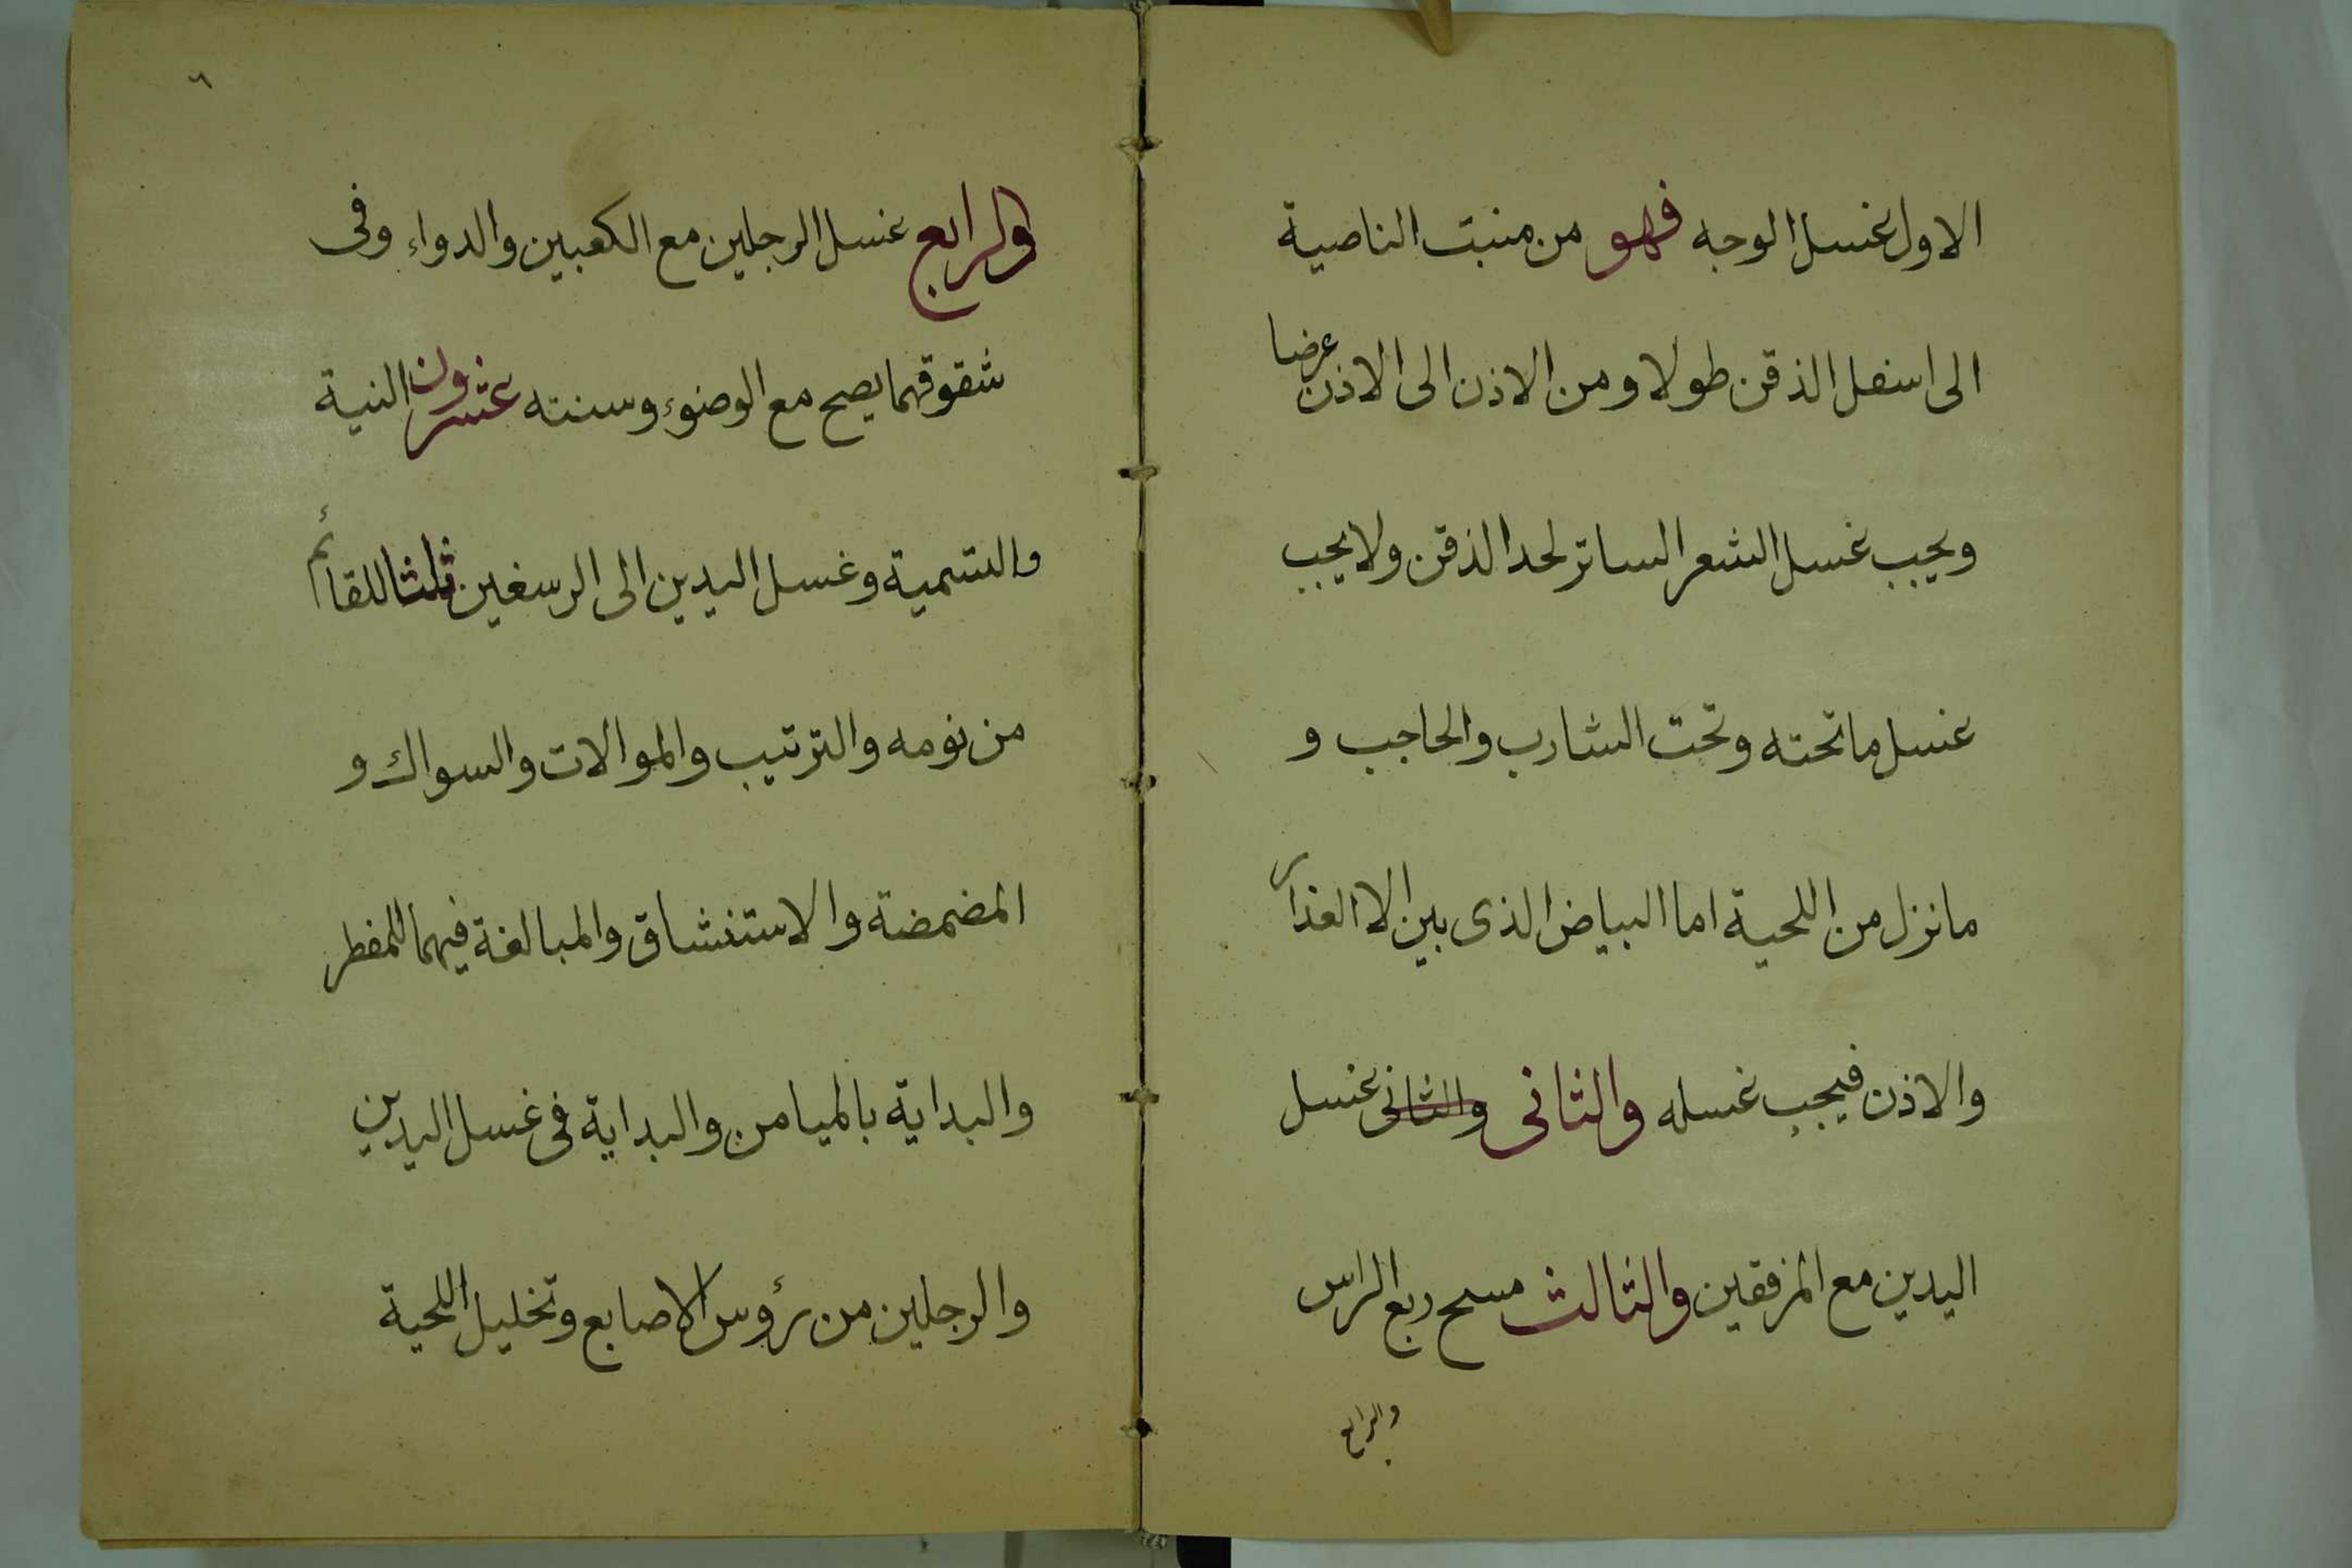 الاول غسل الوجه فهو من منبت الناصية
الى اسفل الذقن طولا ومن الاذن الى الاذن عرضا
ويجب غسل الشعر الساتر لحد الذقن ولا يجب
غسل ما تحته وتحت الشارب والحاجب و
ما نزل من اللحية اما البياض الذى بين الا العذار
والاذن فيجب غسله والثانى والثانى غسل
اليدين مع المرفقين والثالث مسح ربع الراس
والرابع
٦
والرابع غسل الرجلين مع الكعبين والدواء وفى
شقوقهما يصح مع الوضوء وسنته عشرون النية
والتسمية وغسل اليدين الى الرسغين ثلثا للقائم
من نومه والترتيب والموالات والسواك و
المضمضة والاستنشاق والمبالغة فيهما للمفطر
والبداية بالميامن والبداية فى غسل اليدين
والرجلين من رؤس الاصابع وتخليل اللحية